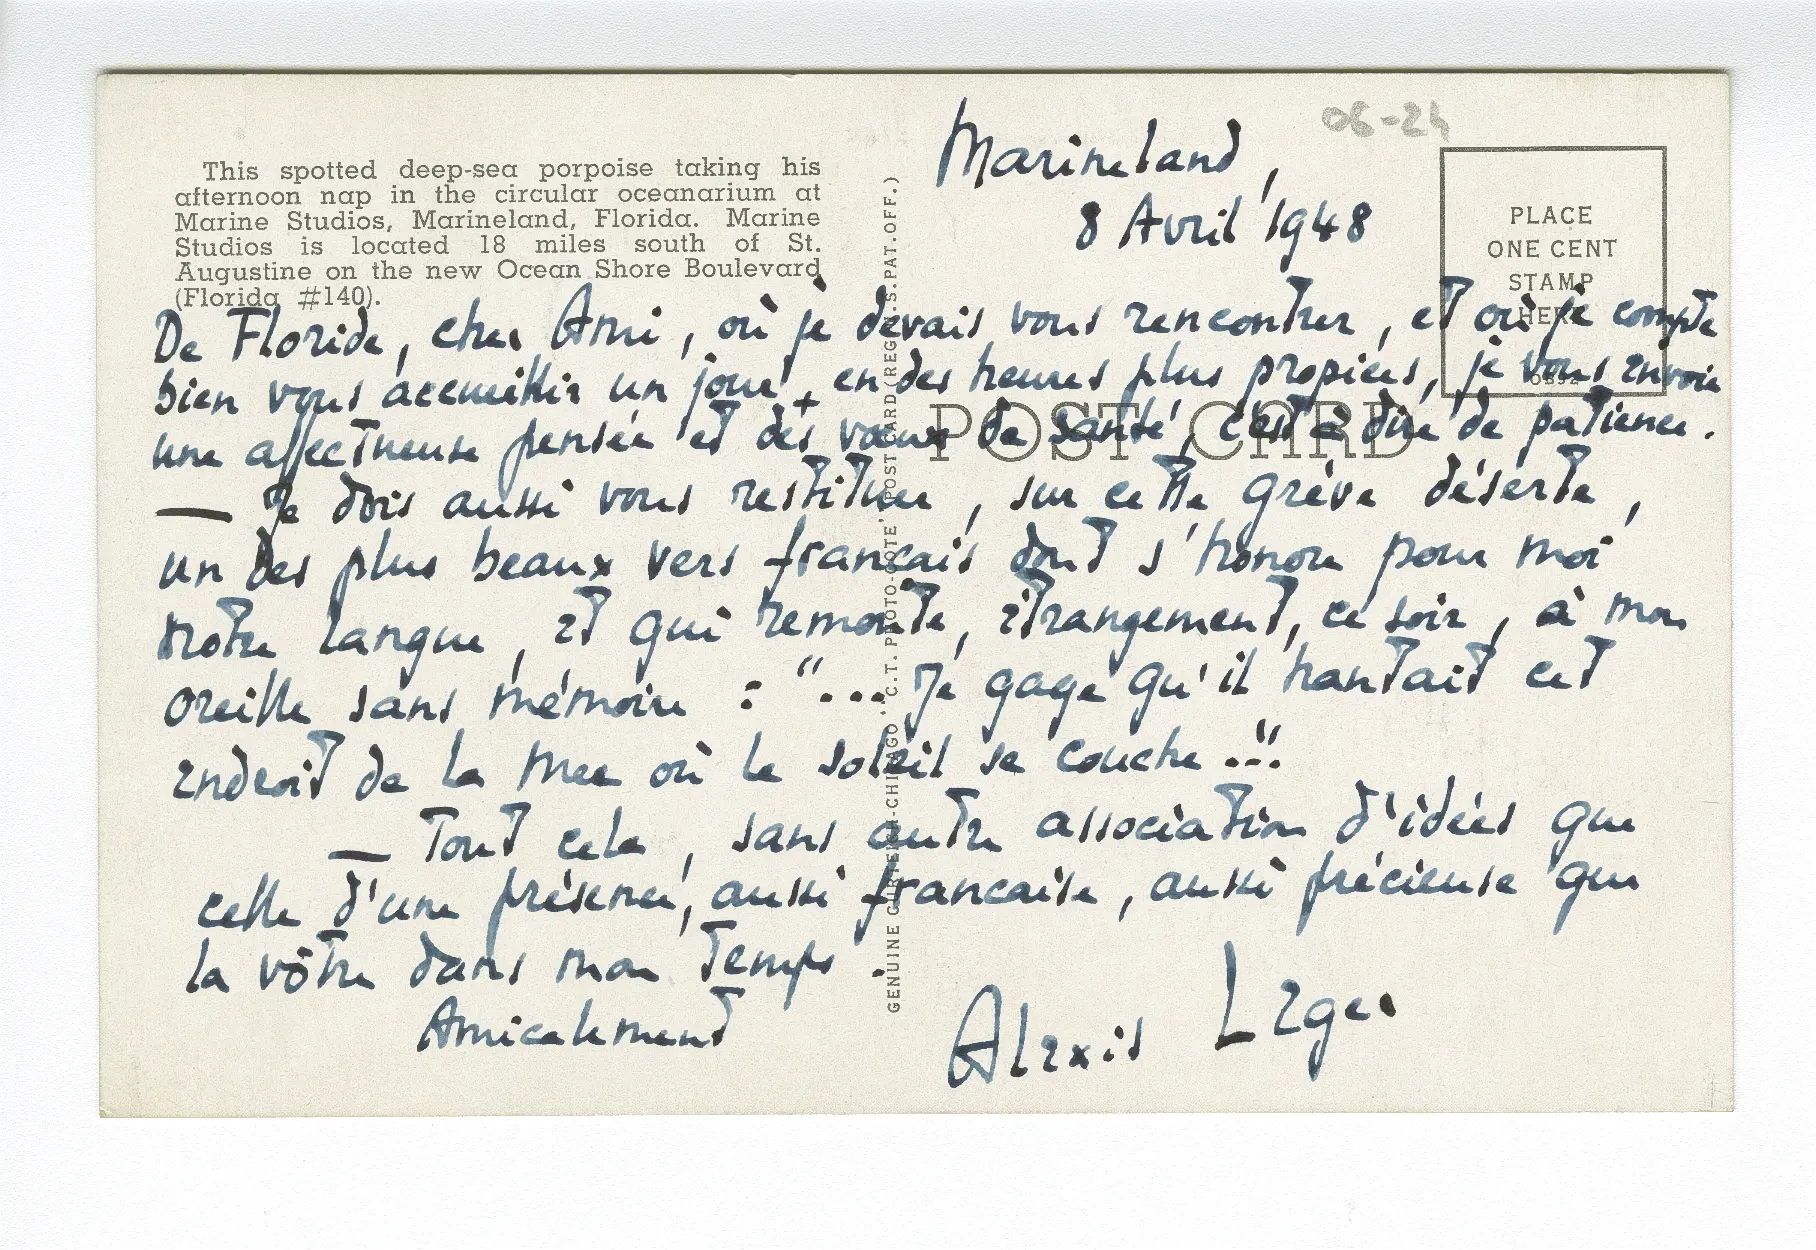 06-24
Marineland,
8 Avril 1948
This spotted deep-sea porpoise taking his
afternoon nap in the circular oceanarium at
Marine Studios, Marineland, Florida. Marine
Studios is located 18 miles south of St.
Augustine on the new Ocean Shore Boulevard
(Florida #140).
PLACE
ONE CENT
STAMP
HERE
POST CARD
GENUINE CURTEICH-CHICAGO "C.T. PHOTO-COTE" POST CARD (REG. U.S. PAT. OFF.)
De Floride, cher Ami, où je devais vous rencontrer, et où je compte
bien vous accueillir un jour, en des heures plus propices, je vous envoie
une affectueuse pensée et des vœux de santé, c'est à dire de patience.
— Je dois aussi vous restituer, sur cette grève déserte,
un des plus beaux vers francais dont s'honore pour moi
notre langue, et qui remonte, étrangement, ce soir, à mon
oreille sans mémoire : "... Je gage qu'il hantait cet
endroit de la mer où le soleil se couche..."
— Tout cela, sans autre association d'idées que
celle d'une présence, aussi francaise, aussi précieuse que
la vôtre dans mon temps.
Amicalement
Alexis Leger